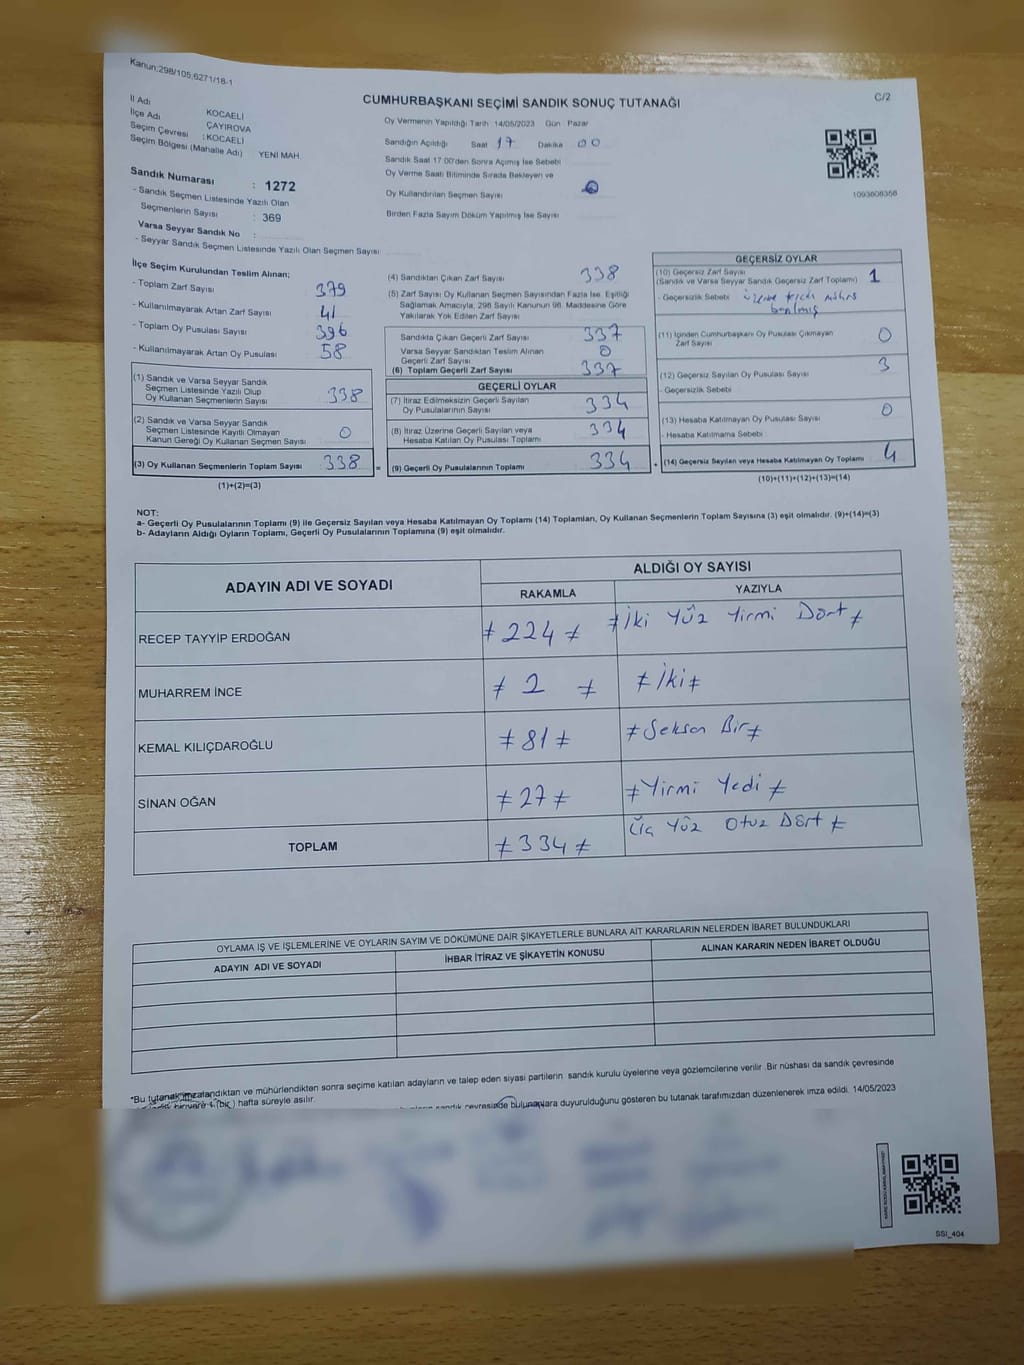 Kanun;298/105;6271/18-1
C/2
CUMHURBAŞKANI SEÇİMİ SANDIK SONUÇ TUTANAĞI
İl Adı KOCAELİ
İlçe Adı ÇAYIROVA
Seçim Çevresi : KOCAELİ
Seçim Bölgesi (Mahalle Adı) YENİ MAH.
Sandık Numarası : 1272
- Sandık Seçmen Listesinde Yazılı Olan
Seçmenlerin Sayısı : 369
Varsa Seyyar Sandık No :
- Seyyar Sandık Seçmen Listesinde Yazılı Olan Seçmen Sayısı
Oy Vermenin Yapıldığı Tarih 14/05/2023 Gün Pazar
Sandığın Açıldığı Saat 17 Dakika 00
Sandık Saat 17:00'den Sonra Açılmış İse Sebebi
Oy Verme Saati Bitiminde Sırada Bekleyen ve
Oy Kullandırılan Seçmen Sayısı
Birden Fazla Sayım Döküm Yapılmış İse Sayısı
1093608356
İlçe Seçim Kurulundan Teslim Alınan;
- Toplam Zarf Sayısı 379
- Kullanılmayarak Artan Zarf Sayısı 41
- Toplam Oy Pusulası Sayısı 396
- Kullanılmayarak Artan Oy Pusulası 58
(1) Sandık ve Varsa Seyyar Sandık
Seçmen Listesinde Yazılı Olup
Oy Kullanan Seçmenlerin Sayısı 338
(2) Sandık ve Varsa Seyyar Sandık
Seçmen Listesinde Kayıtlı Olmayan
Kanun Gereği Oy Kullanan Seçmen Sayısı 0
(3) Oy Kullanan Seçmenlerin Toplam Sayısı 338 =
(1)+(2)=(3)
(4) Sandıktan Çıkan Zarf Sayısı 338
(5) Zarf Sayısı Oy Kullanan Seçmen Sayısından Fazla İse, Eşitliği
Sağlamak Amacıyla; 298 Sayılı Kanunun 98. Maddesine Göre
Yakılarak Yok Edilen Zarf Sayısı
Sandıkta Çıkan Geçerli Zarf Sayısı 337
Varsa Seyyar Sandıktan Teslim Alınan
Geçerli Zarf Sayısı 0
(6) Toplam Geçerli Zarf Sayısı 337
GEÇERLİ OYLAR
(7) İtiraz Edilmeksizin Geçerli Sayılan
Oy Pusulalarının Sayısı 334
(8) İtiraz Üzerine Geçerli Sayılan veya
Hesaba Katılan Oy Pusulası Toplamı 334
(9) Geçerli Oy Pusulalarının Toplamı 334 +
GEÇERSİZ OYLAR
(10) Geçersiz Zarf Sayısı
(Sandık ve Varsa Seyyar Sandık Geçersiz Zarf Toplamı) 1
- Geçersizlik Sebebi üzerine tercih mührü
basılmış
(11) İçinden Cumhurbaşkanı Oy Pusulası Çıkmayan
Zarf Sayısı 0
(12) Geçersiz Sayılan Oy Pusulası Sayısı 3
- Geçersizlik Sebebi
(13) Hesaba Katılmayan Oy Pusulası Sayısı 0
- Hesaba Katılmama Sebebi
(14) Geçersiz Sayılan veya Hesaba Katılmayan Oy Toplamı 4
(10)+(11)+(12)+(13)=(14)
NOT:
a- Geçerli Oy Pusulalarının Toplamı (9) ile Geçersiz Sayılan veya Hesaba Katılmayan Oy Toplamı (14) Toplamları, Oy Kullanan Seçmenlerin Toplam Sayısına (3) eşit olmalıdır. (9)+(14)=(3)
b- Adayların Aldığı Oyların Toplamı, Geçerli Oy Pusulalarının Toplamına (9) eşit olmalıdır.
ADAYIN ADI VE SOYADI
ALDIĞI OY SAYISI
RAKAMLA YAZIYLA
RECEP TAYYİP ERDOĞAN ≠ 224 ≠ ≠ İki Yüz Yirmi Dört ≠
MUHARREM İNCE ≠ 2 ≠ ≠ İki ≠
KEMAL KILIÇDAROĞLU ≠ 81 ≠ ≠ Seksen Bir ≠
SİNAN OĞAN ≠ 27 ≠ ≠ Yirmi Yedi ≠
TOPLAM ≠ 334 ≠ Üç Yüz Otuz Dört ≠
OYLAMA İŞ VE İŞLEMLERİNE VE OYLARIN SAYIM VE DÖKÜMÜNE DAİR ŞİKAYETLERLE BUNLARA AİT KARARLARIN NELERDEN İBARET BULUNDUKLARI
ADAYIN ADI VE SOYADI İHBAR İTİRAZ VE ŞİKAYETİN KONUSU ALINAN KARARIN NEDEN İBARET OLDUĞU
*Bu tutanak imzalandıktan ve mühürlendikten sonra seçime katılan adayların ve talep eden siyasi partilerin sandık kurulu üyelerine veya gözlemcilerine verilir. Bir nüshası da sandık çevresinde
1 (bir) hafta süreyle asılır.
sandık çevresinde bulunanlara duyurulduğunu gösteren bu tutanak tarafımızdan düzenlenerek imza edildi. 14/05/2023
SSI_404